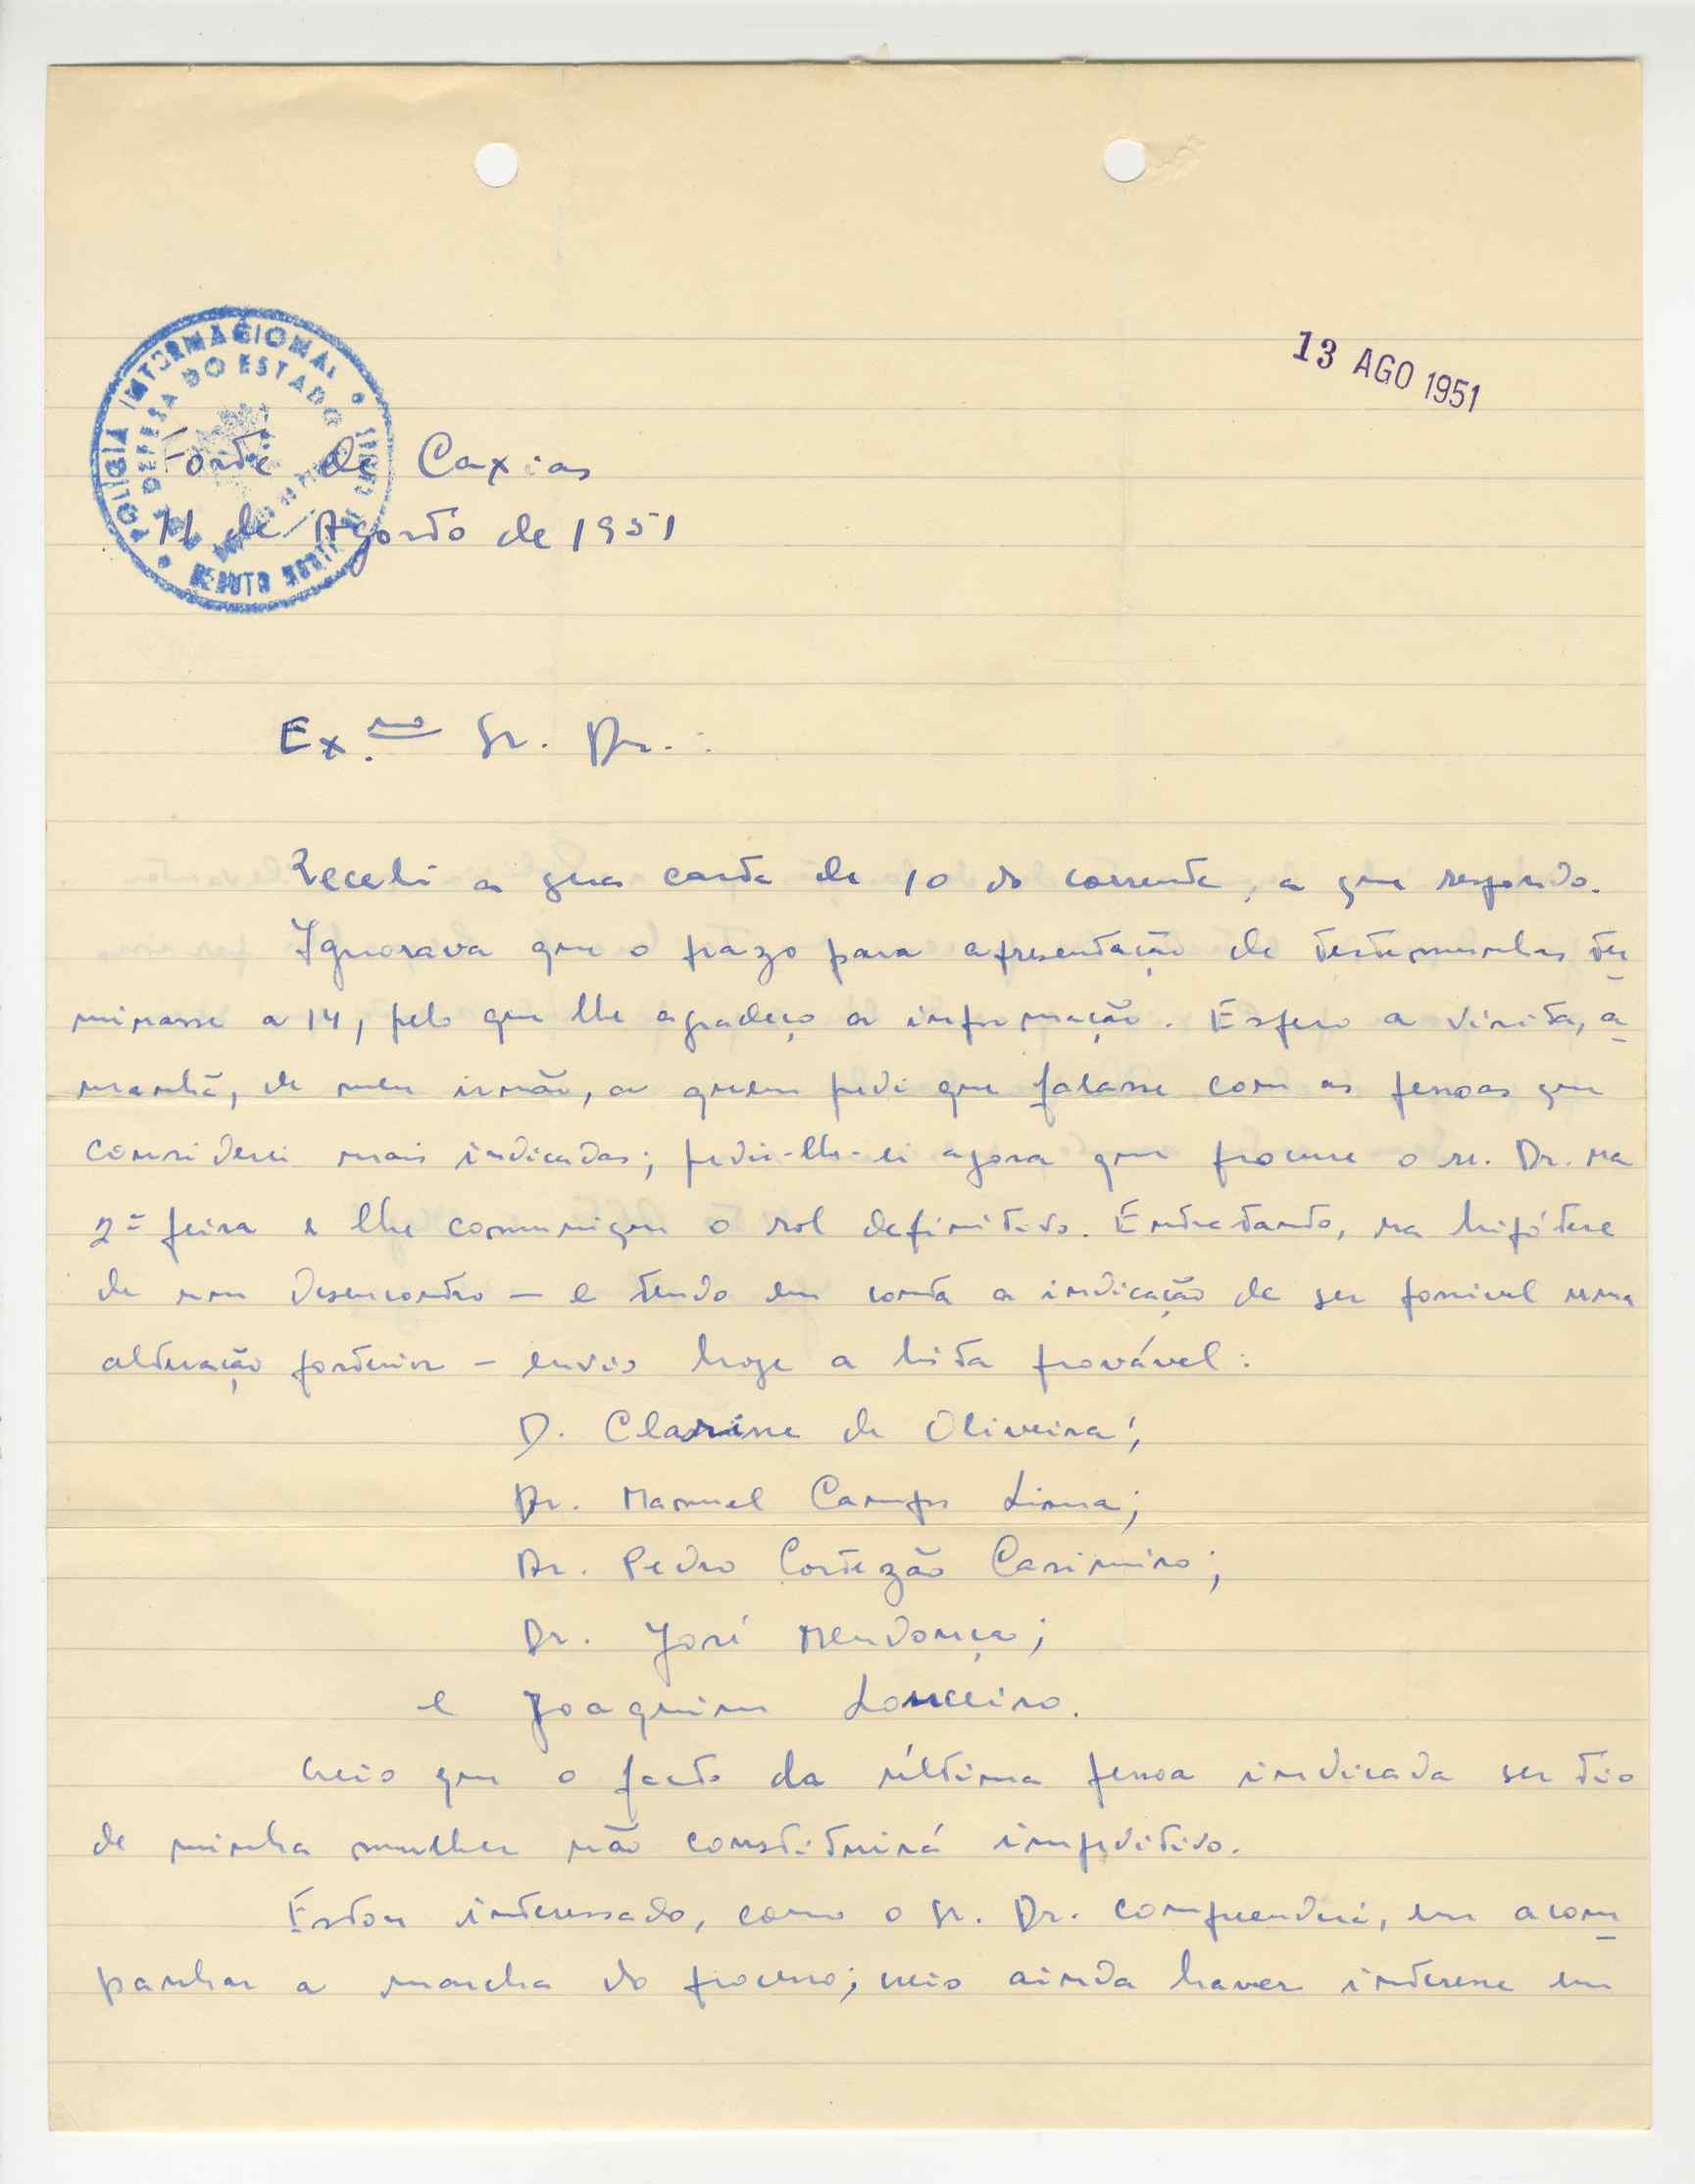 13 AGO 1951
POLÍCIA INTERNACIONAL
DEFESA DO ESTADO
REDUTO NORTE
Forte de Caxias
11 de Agosto de 1951
Ex.mo Sr. Dr.:
Recebi a sua carta de 10 do corrente, a que respondo.
Ignorava que o prazo para apresentação de testemunhas ter
minasse a 14, pelo que lhe agradeço a informação. Espero a visita, a
manhã, de meu irmão, a quem pedi que falasse com as pessoas que
considerei mais indicadas; pedir-lhe-ei agora que procure o sr. Dr. na
2ª feira e lhe comunique o rol definitivo. Entretanto, na hipótese
de um desencontro — e tendo em conta a indicação de ser possível uma
alteração posterior — envio hoje a lista provável:
D. Clarisse de Oliveira;
Dr. Manuel Campos Lima;
Dr. Pedro Cortezão Casimiro;
Dr. José Mendonça;
e Joaquim Louceiro.
Creio que o facto da última pessoa indicada ser tio
de minha mulher não constituirá impeditivo.
Estou interessado, como o Sr. Dr. compreenderá, em acom
panhar a marcha do processo; creio ainda haver interesse em